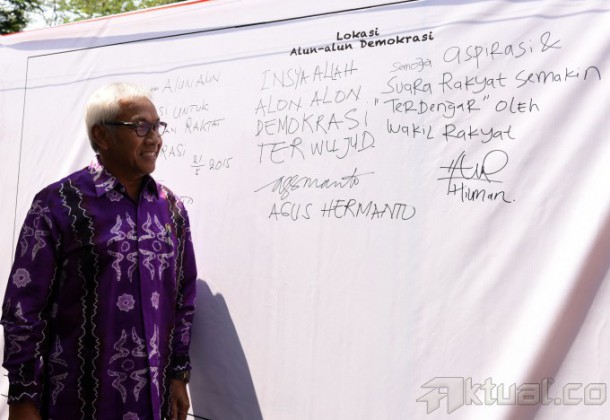 Lokasi
Alun-alun Demokrasi
ALUN ALUN
UNTUK
RAKYAT
21/5 2015
INSYA ALLAH
ALON ALON
DEMOKRASI
TERWUJUD
agsmanto
AGUS HERMANTO
Semoga ASPIRASI &
SUARA RAKYAT SEMAKIN
"TERDENGAR" OLEH
WAKIL RAKYAT
Hilman.
Aktual.co